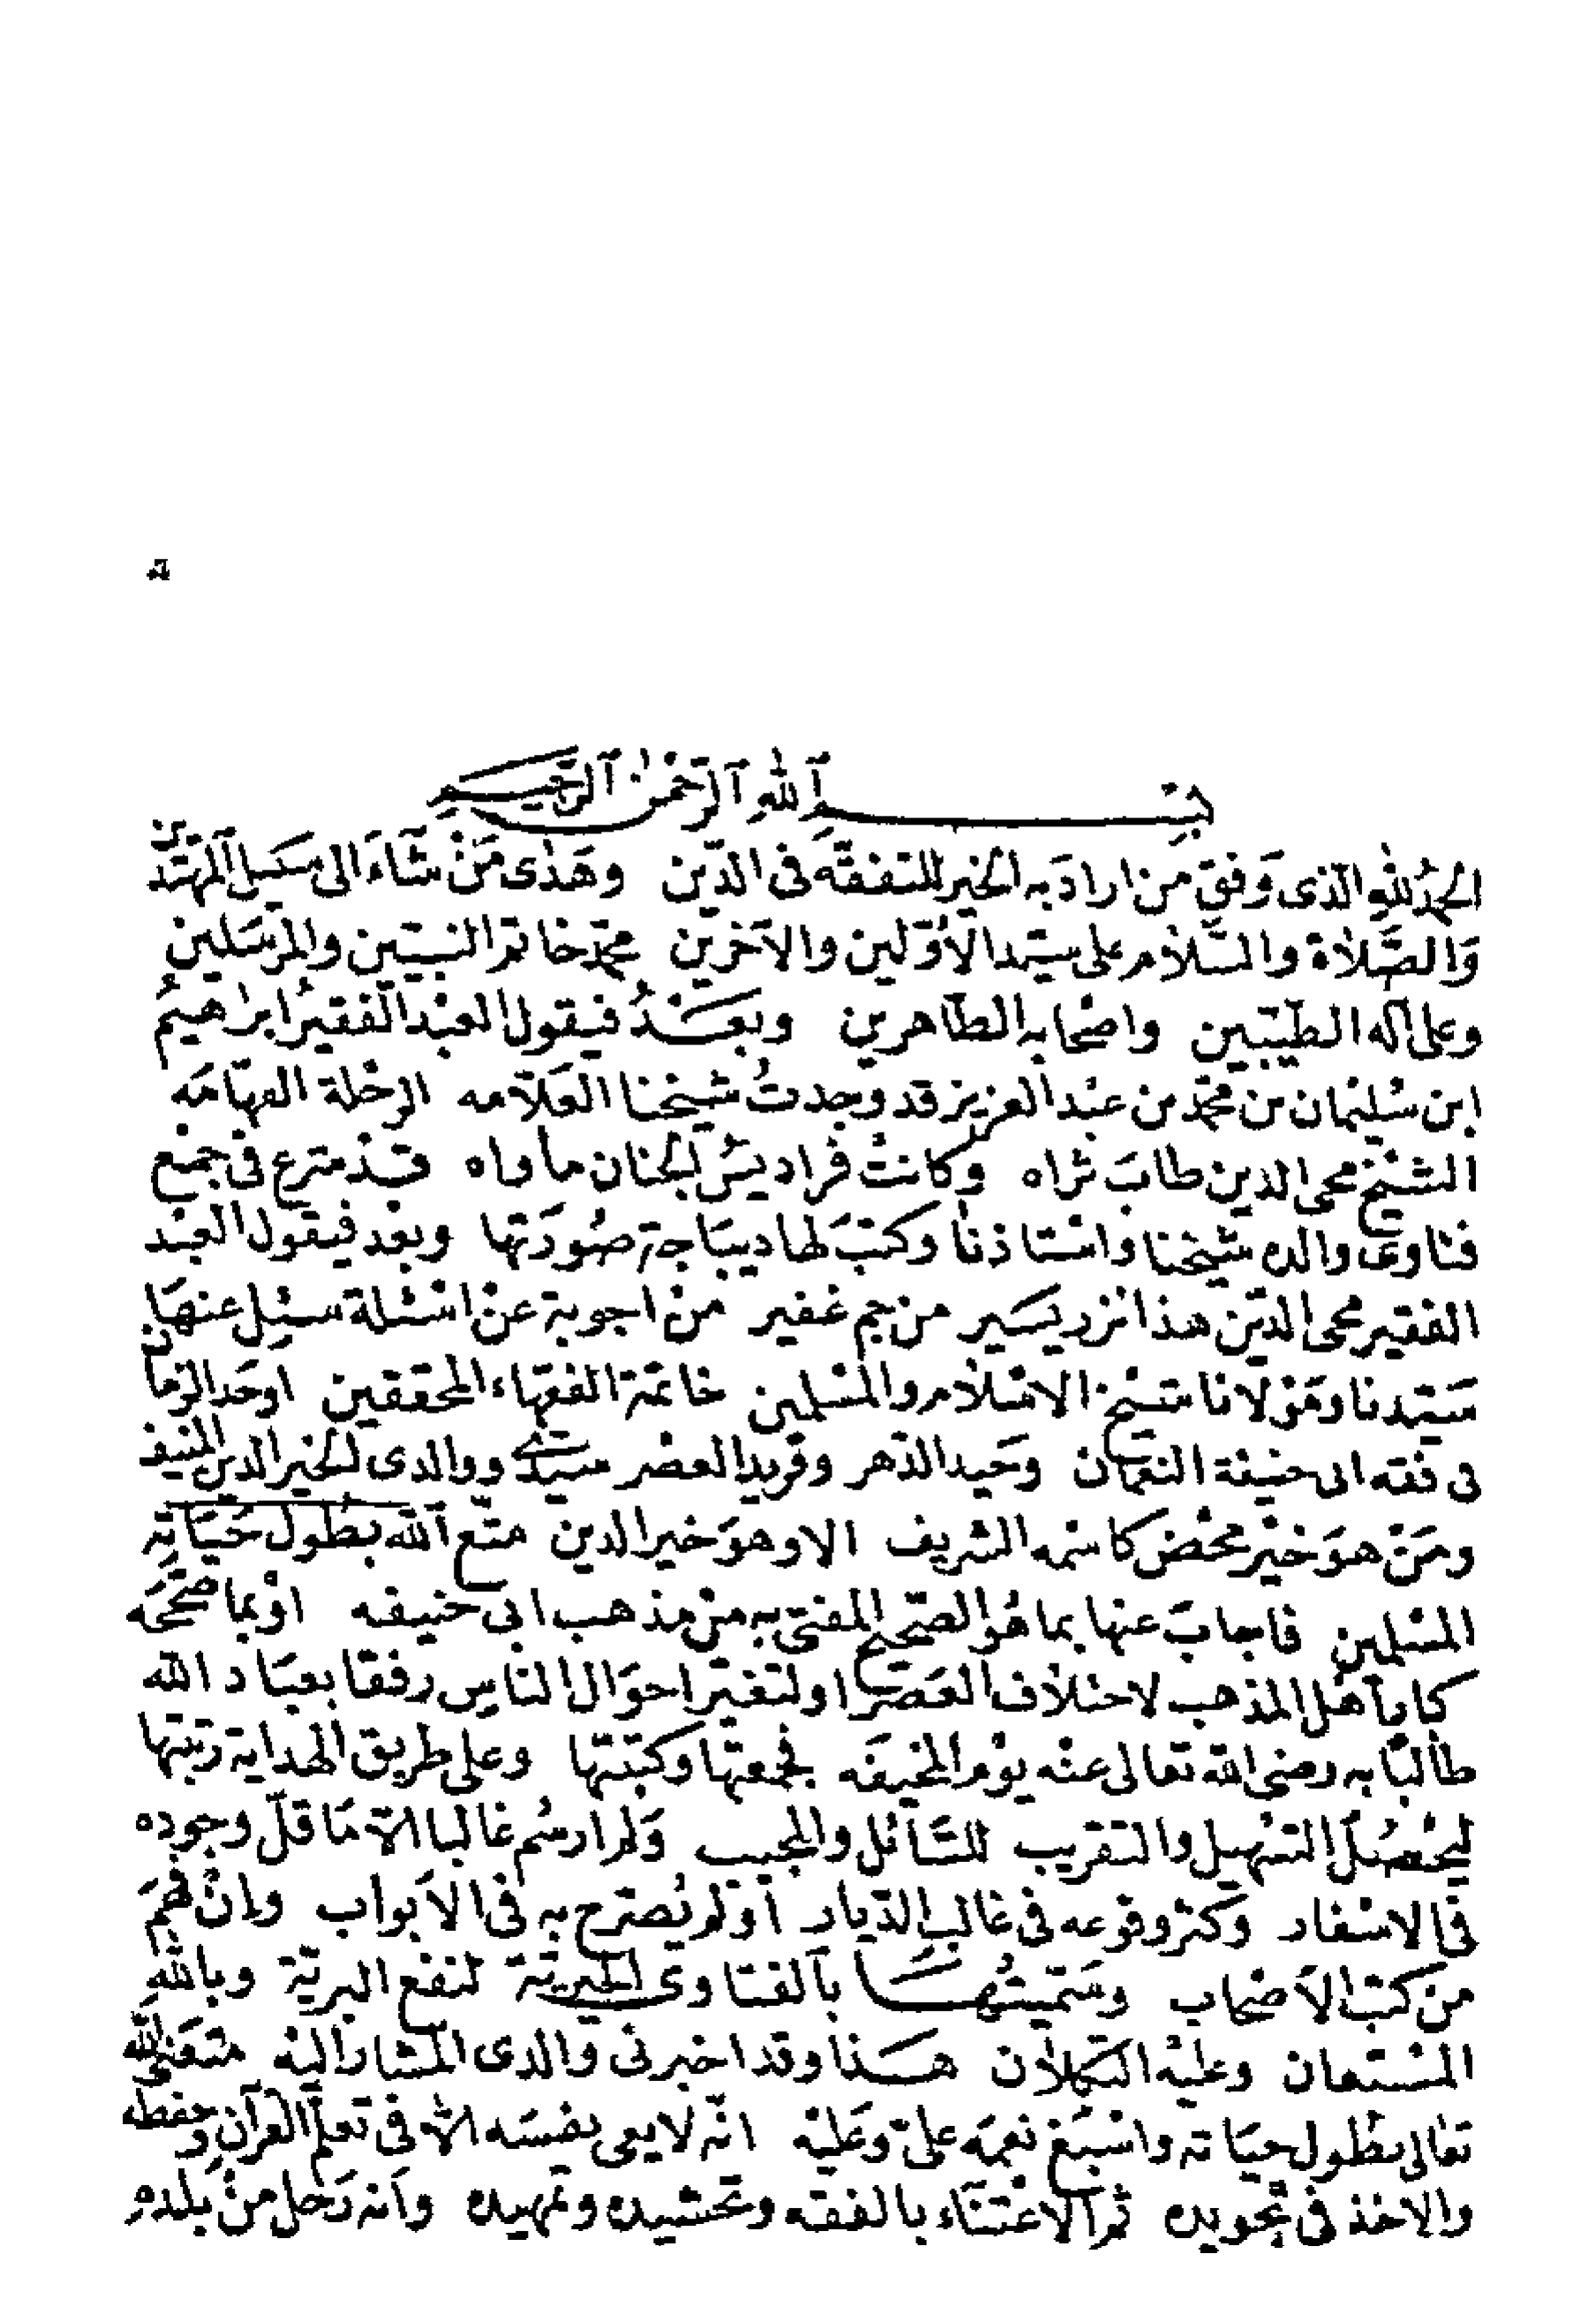 بِسْمِ ٱللهِ ٱلرَّحْمٰنِ ٱلرَّحِيمِ
الحمدُ للهِ الذى وَفق من ارادَ به الخير للتفقّه فى الدّين وهَدٰى مَنْ شآءَ الى سَبيل المهتدين
وَالصَّلاة والسَّلام على سيّد الأوّلين والآخرين محمّد خاتم النبيّين والمرسَلين
وعلى آله الطيّبين واصْحابه الطّاهرين وبعَـدُ فيقول العبْد الفقيرُ ابرٰهيمُ
ابن سُليْمان بن محمّد بن عبْد العزيز قد وجدتُ شيخنا العَلّامه الرحْلة الفهّامَه
الشيْخ محى الدين طابَ ثراه وكانتْ فراديسُ الجنان مأواه قد شرع فى جميع
فتاوى والده شيخنا واسْتاذنا وكتبَ لها ديبَاجة صُورَتها وبعد فيقول العبْد
الفقير محى الدّين هذا نزر يسَير من جم غفير منْ اجوبة عنْ اسْئلة سئِل عنهَا
سَيّدنا ومَوْلانا شيْخ الاسْلام والمسْلمين خاتمة الفقهاء المحققين اوحَد الزمان
فى فقه ابى حنيفة النعمان وحَيد الدّهر وفريد العصْر سيّدى ووالدى الخير الدين المنيف
ومَنْ هوَ خيْر محْض كاسْمه الشريف الا وهوَ خير الدين متّع الله بطول حَيَاتِه
المسْلمين فاجابَ عنها بما هُوَ الصّحيح المفتى به منْ مذهب ابى حنيفه اوْ بما صحّحَه
كبار أهْل المذهب لاختلاف العَصْر او لتغيّر احوَال الناس رفقا بعبَاد الله
طالبًا به رضى الله تعالى عنْه يوْم الخيفَه فجمعتها وكتبْتها وعلى طريق الهداية رتبتها
ليحْصُل التسْهيل والتقريب للسَّائل والمجيب وَلم ارسُم غالبا الّا مَا قلّ وجوده
فى الاسْفار وكثر وقوعه فى غالب الدّيار أو لم يُصَرّح به فى الأبواب وانْ فهمَ
من كتب الأصْحاب وسَمّيتُهـا بالفتاوى الخيريّة لنفع البريّة وبالله
المسْتعان وعليْه التكلان هـذا وقد اخبرنى والدى المشار اليْه متعَنى الله
تعالى بطول حيَاته واسْبَغ نعمَه علىّ وعَليْه انّه لا يعى نفسَه الّا فى تعلّم القرآن وحفظه
والاخذ فى تجويده ثم الاعْتنَاء بالفقه وتحشيده وتمهيده وانه رَحل منْ بَلده